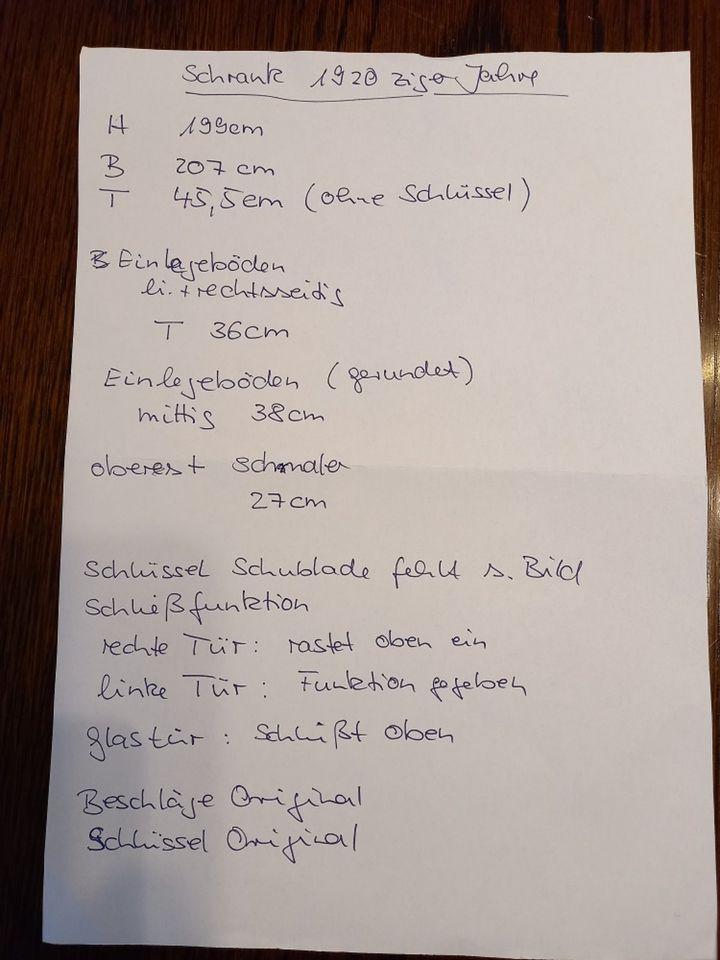 Schrank 1920 ziger Jahre
H 199cm
B 207 cm
T 45,5cm (ohne Schlüssel)
3 Einlegeböden
li. + rechtsseitig
T 36cm
Einlegeböden (gerundet)
mittig 38cm
oberest schmaler
27cm
Schlüssel Schublade fehlt s. Bild
Schließfunktion
rechte Tür: rastet oben ein
linke Tür: Funktion gegeben
Glastür: Schließt oben
Beschläge Original
Schlüssel Original